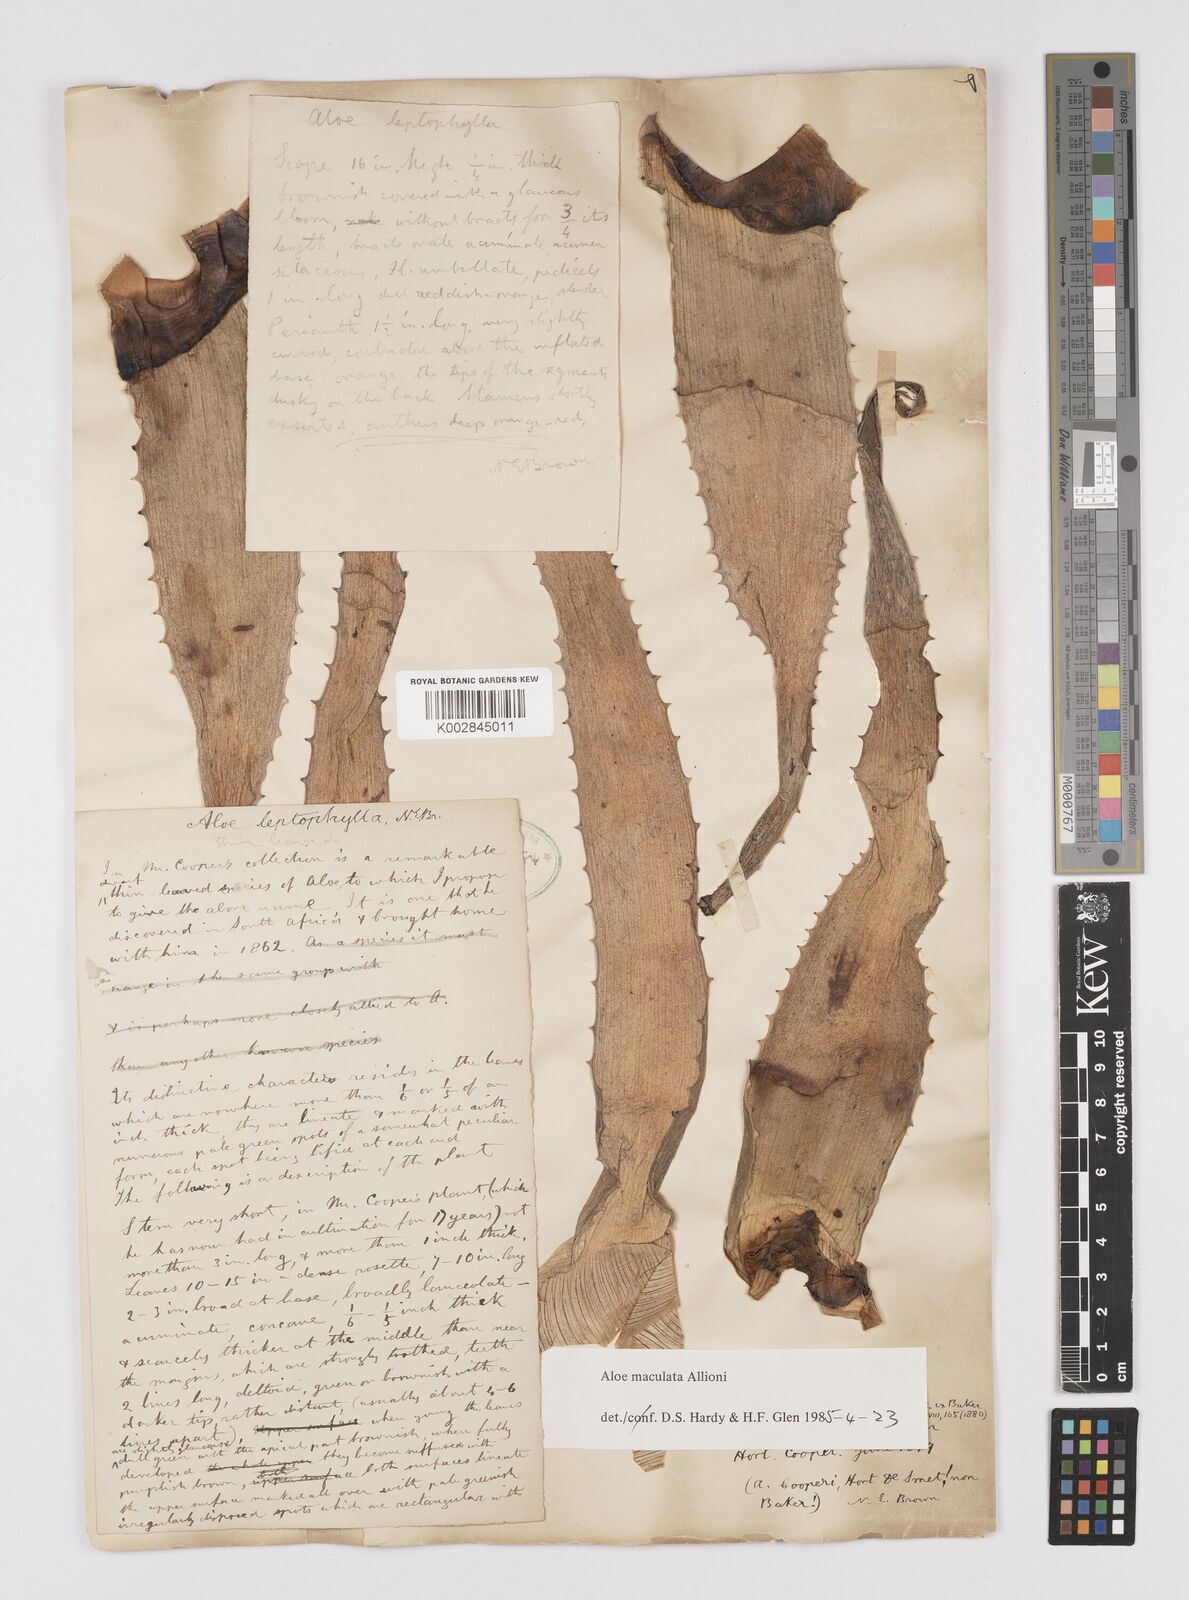 8
Aloe leptophylla
Scape 16 in. high 1/4 in. thick
brownish covered with a glaucous
bloom, without bracts for 3/4 its
length, bracts ovate acuminate, acumen
setaceous, Fl. umbellate, pedicels
1 in. long reddish-orange, slender
Perianth 1 1/2 in. long, very slightly
curved, contracted above the inflated
base, orange, the tips of the segments
dusky on the back Stamens shortly
exserted anthers deep orange-red,
N E Brown
ROYAL BOTANIC GARDENS KEW
K002845011
Aloe leptophylla, N.E.Br.
thin leaved
In Mr. Cooper's collection is a remarkable
dwarf
thin-leaved species of Aloe, to which I propose
to give the above name. It is one that he
discovered in South Africa & brought home
with him in 1862. As a species it must
range in the same group with
& is perhaps more closely allied to A.
than any other known species
Its distinctive character resides in the leaves
which are nowhere more than 1/6 or 1/5 of an
inch thick, they are lineate & marked with
numerous pale green spots of a somewhat peculiar
form, each spot being bifid at each end
The following is a description of the plant
Stem very short, in Mr. Cooper's plant, (which
he has now had in cultivation for 17 years) not
more than 3 in. long, & more than 1 inch thick.
Leaves 10-15 in a dense rosette, 7-10 in. long
2-3 in. broad at base, broadly lanceolate-
acuminate, concave, 1/6-1/5 inch thick
& scarcely thicker at the middle than near
the margins, which are strongly toothed, teeth
2 lines long, deltoid, green or brownish with a
darker tip, rather distant, (usually about 4-6
lines apart), upper surface when young the leaves
are slightly glaucous,
dull green with the apical part brownish, when fully
developed the whole upper they become suffused with
purplish brown, upper surface both surfaces lineate
the upper surface marked all over with pale greenish
irregularly disposed spots which are rectangular with
Aloe maculata Allioni
det./conf. D.S. Hardy & H.F. Glen 1985-4-23
ex Baker
XVIII, 165 (1880)
Hort. Cooper. June 1879
(A. Cooperi, Hort De Smet! non
Baker!) N. E. Brown
inches
centimeters
Don Williams
M000767
Royal Botanic Gardens
Kew
0 1 2 3 4 5 6 7 8 9 10
cm
copyright reserved